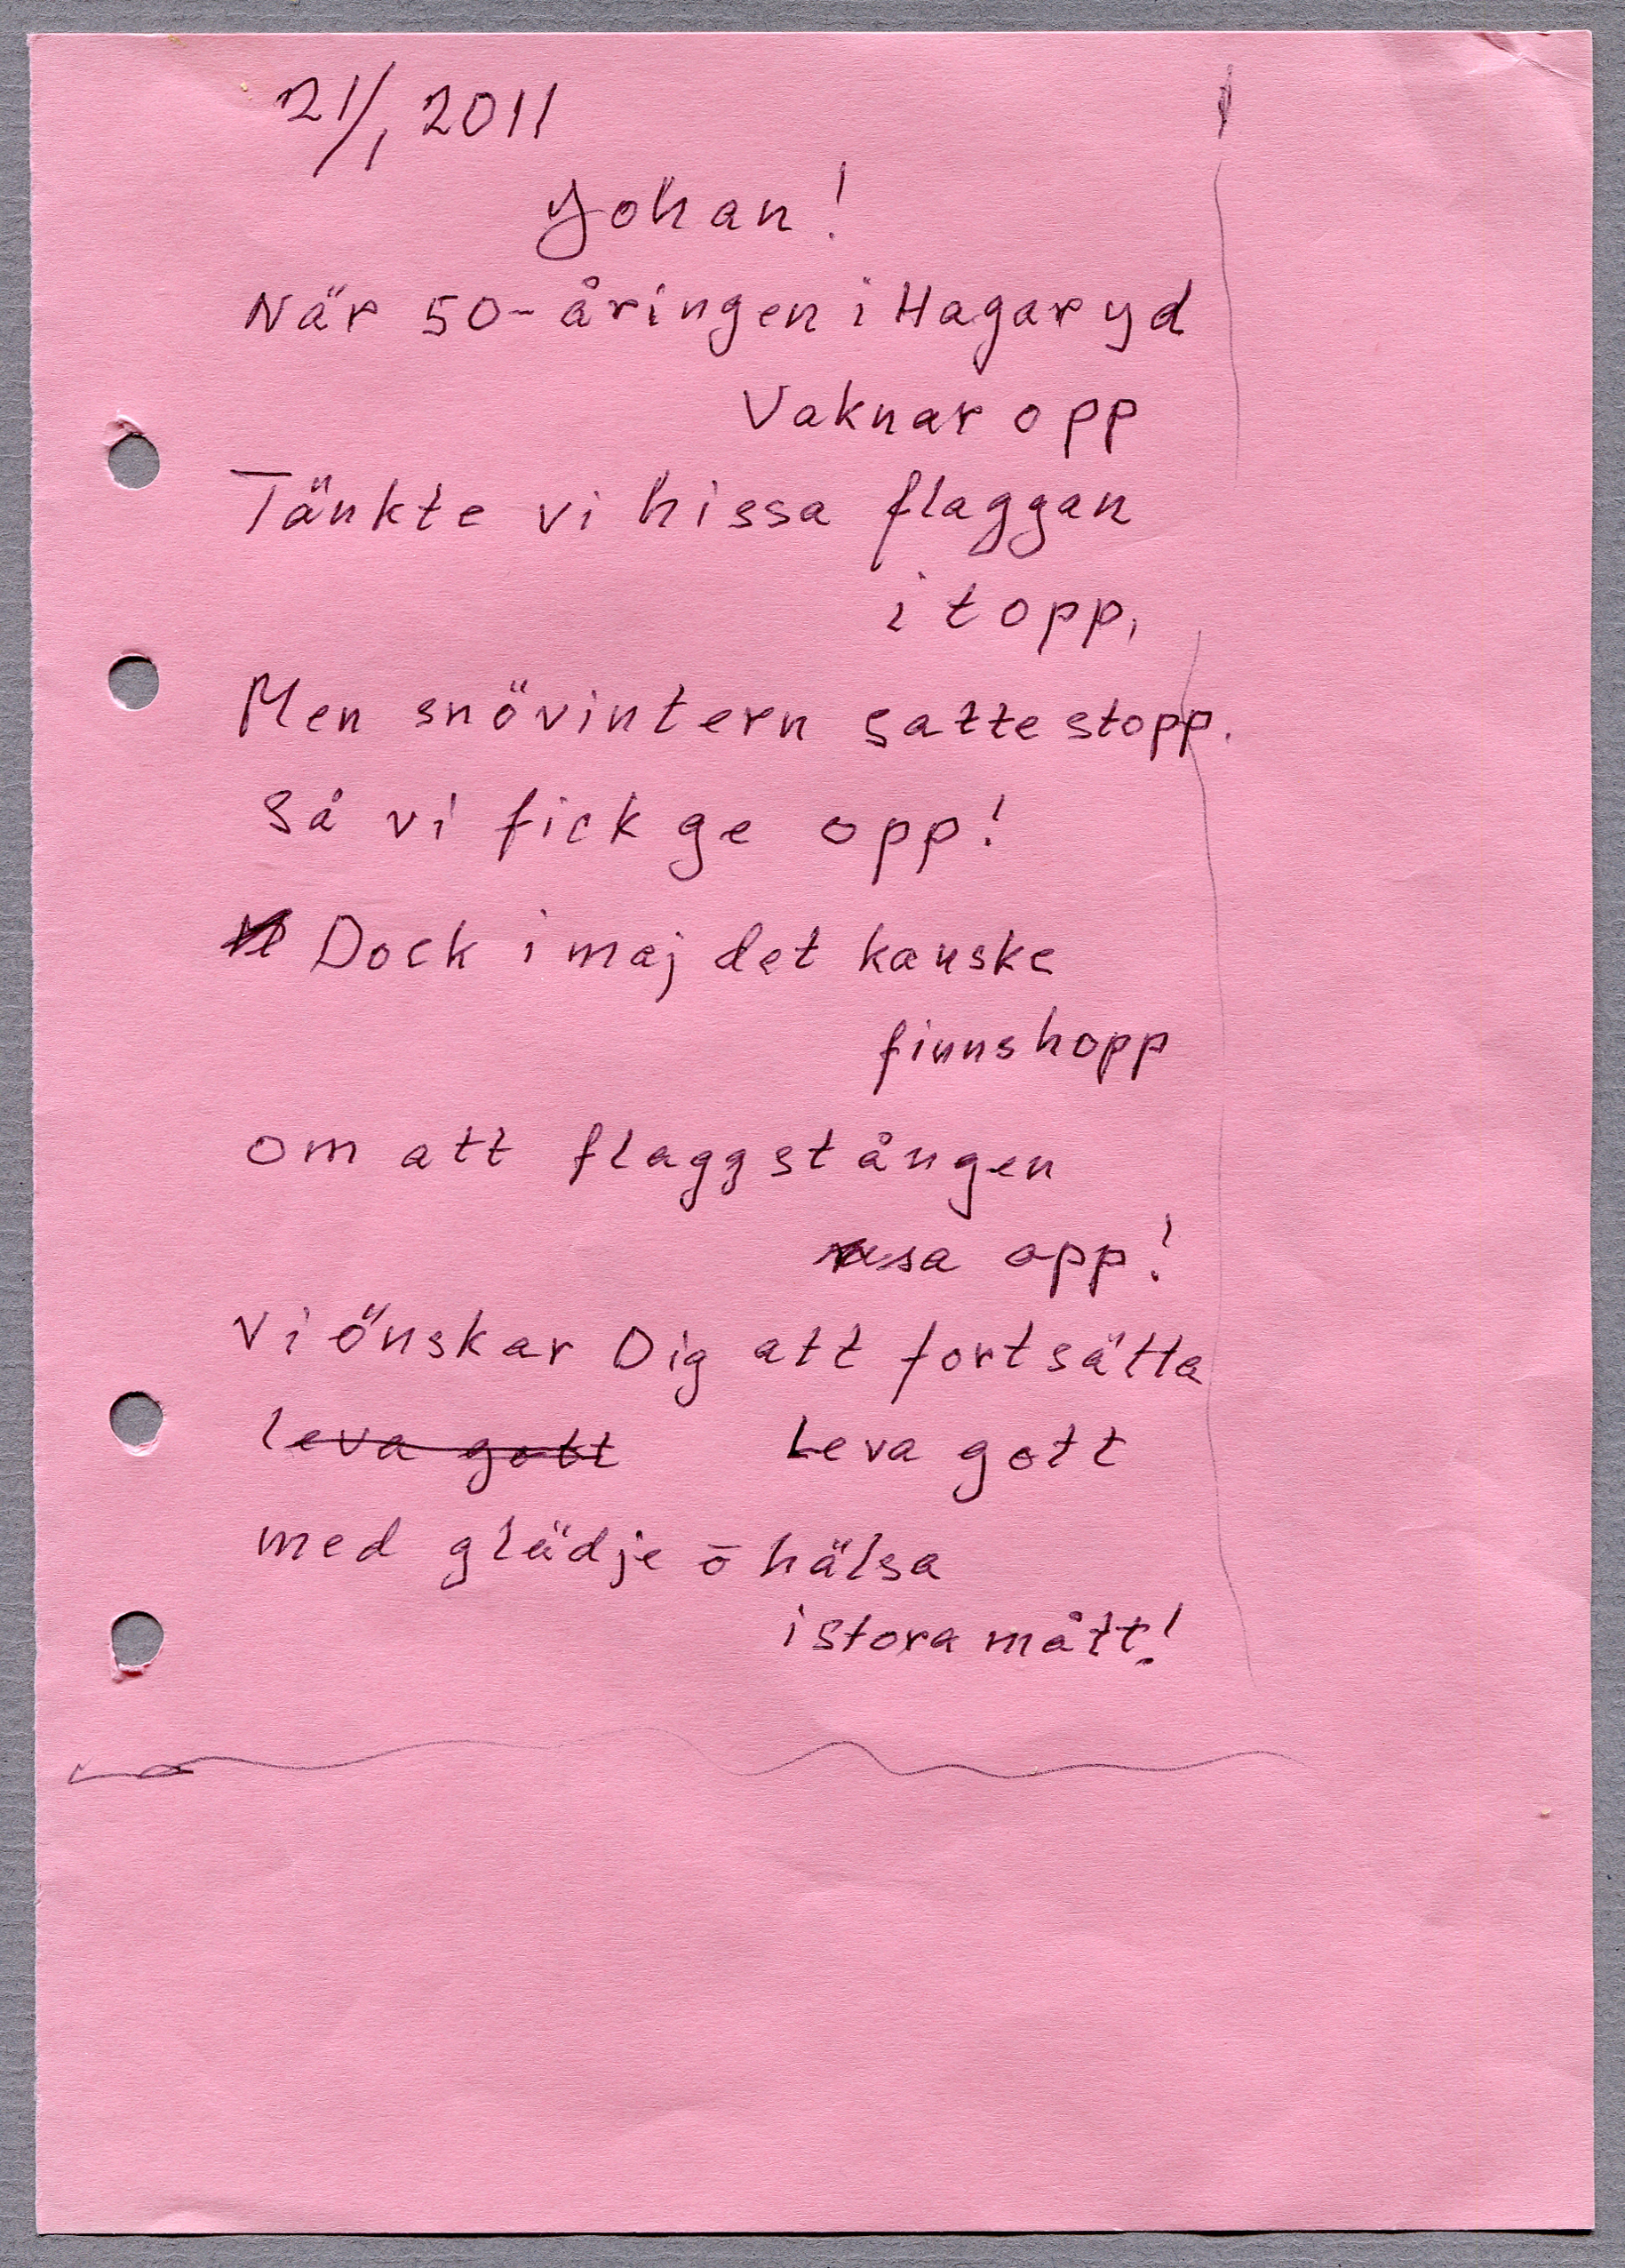 21/1 2011
Johan!
När 50-åringen i Hagaryd
Vaknar opp
Tänkte vi hissa flaggan
i topp,
Men snövintern satte stopp.
Så vi fick ge opp!
Dock i maj det kanske
finns hopp
om att flaggstången
resa opp!
Vi önskar Dig att fortsätta
leva gott Leva gott
med glädje ō hälsa
i stora mått!